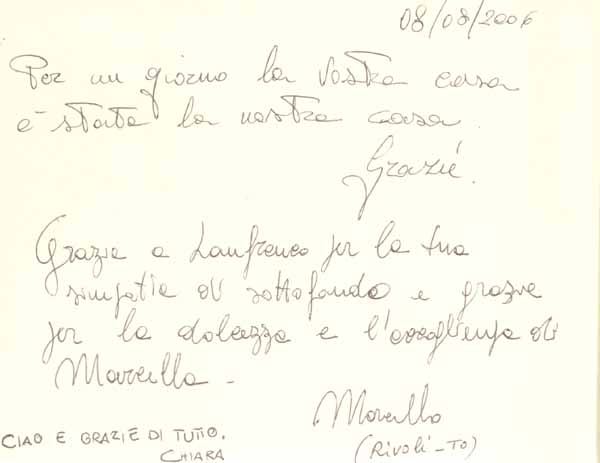 08/08/2006
Per un giorno la Vostra casa
è stata la nostra casa.
Grazie.
Grazie a Lanfranco per la tua
simpatia di sottofondo e grazie
per la dolcezza e l'accoglienza di
Marcella -
Marcello
(RIVOLI - TO)
CIAO E GRAZIE DI TUTTO.
CHIARA